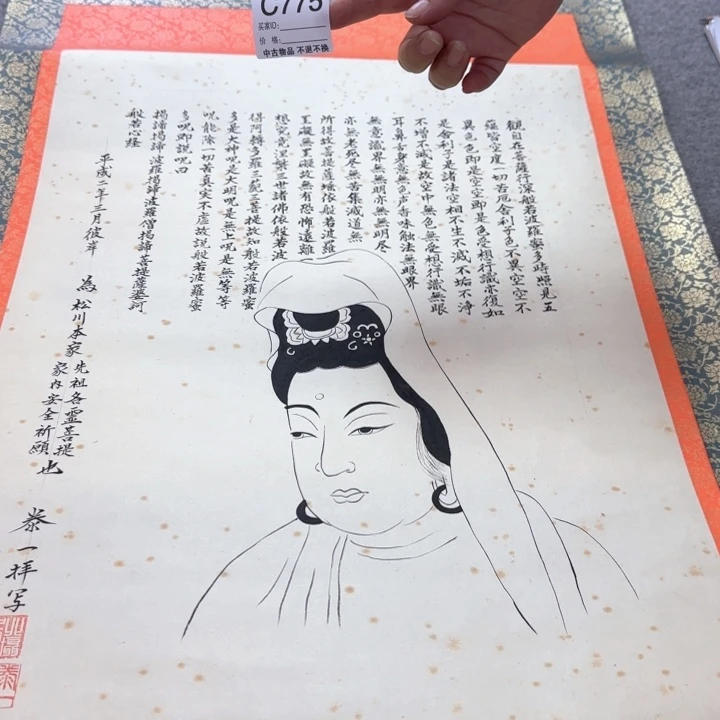 C775
买家ID:
价 格:
中古物品 不退不换
觀自在菩薩行深般若波羅蜜多時照見五
蘊皆空度一切苦厄舍利子色不異空空不
異色色即是空空即是色受想行識亦復如
是舍利子是諸法空相不生不滅不垢不浄
不増不減是故空中無色無受想行識無眼
耳鼻舌身意無色声香味触法無眼界
無意識界無無明亦無無明尽
亦無老死尽無苦集滅道無
所得故菩提薩埵依般若波羅
罣礙無罣礙故無有恐怖遠離
想究竟涅槃三世諸佛依般若波
得阿耨多羅三藐三菩提故知般若波羅蜜
多是大神呪是大明呪是無上呪是無等等
呪能除一切苦真実不虚故説般若波羅蜜
多呪即説呪曰
揭諦揭諦波羅揭諦波羅僧揭諦菩提薩婆訶
般若心経
平成二年三月彼岸
為松川本家
先祖各霊菩提
家内安全祈願
也
泰一拝写